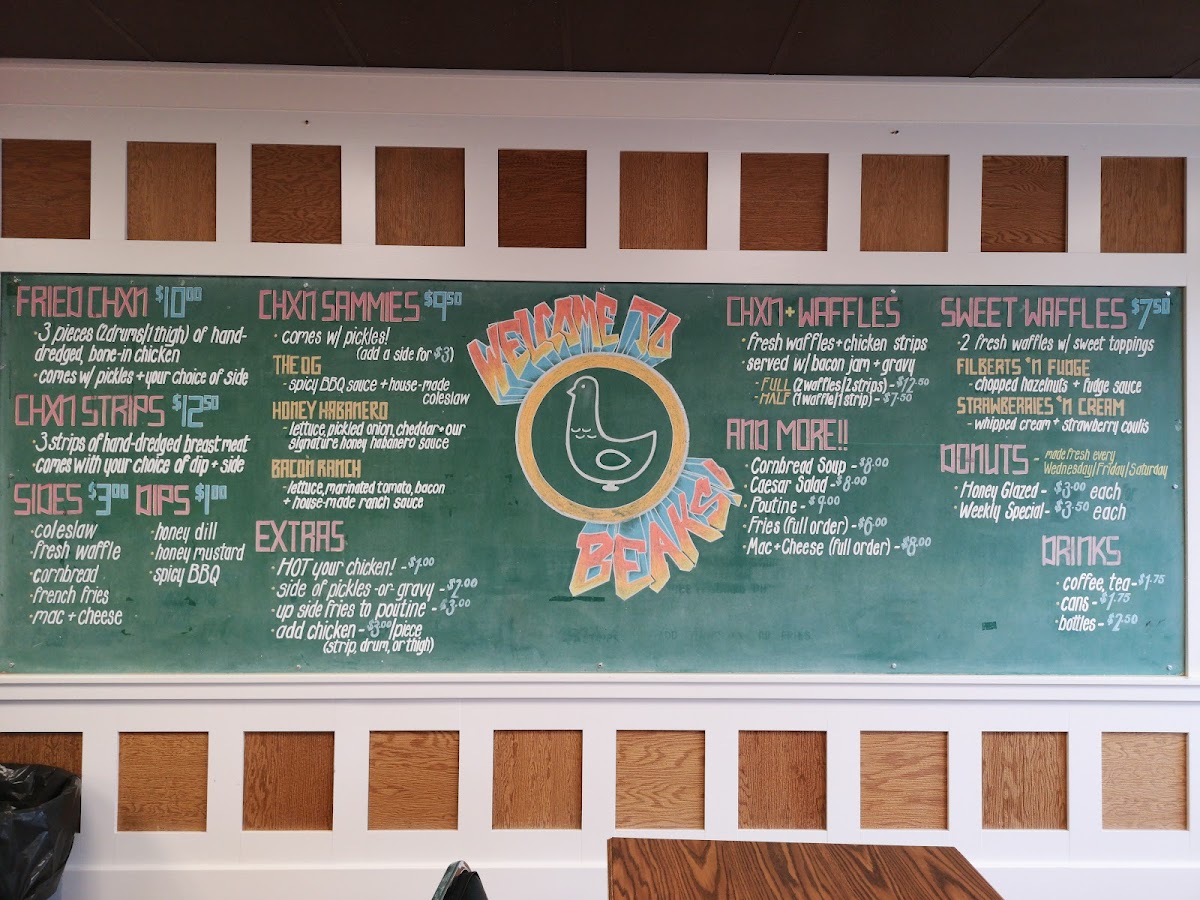 FRIED CHXN $10.00
· 3 pieces (2drums/1thigh) of hand-
dredged, bone-in chicken
· comes w/ pickles + your choice of side
CHXN STRIPS $12.50
· 3 strips of hand-dredged breast meat
· comes with your choice of dip + side
SIDES $3.00
· coleslaw
· fresh waffle
· cornbread
· french fries
· mac + cheese
DIPS $1.00
· honey dill
· honey mustard
· spicy BBQ
CHXN SAMMIES $9.50
· comes w/ pickles!
(add a side for $3)
THE OG
- spicy BBQ sauce + house-made
coleslaw
HONEY HABANERO
- lettuce, pickled onion, cheddar + our
signature honey habanero sauce
BACON RANCH
- lettuce, marinated tomato, bacon
+ house-made ranch sauce
EXTRAS
· HOT your chicken! - $1.00
· side of pickles -or- gravy - $2.00
· up side fries to poutine - $3.00
· add chicken - $3.00/piece
(strip, drum, or thigh)
WELCOME TO
BEAKS!
CHXN + WAFFLES
· fresh waffles + chicken strips
· served w/ bacon jam + gravy
- FULL (2 waffles/2 strips) - $12.50
- HALF (1 waffle/1 strip) - $7.50
AND MORE!!
· Cornbread Soup - $8.00
· Caesar Salad - $8.00
· Poutine - $9.00
· Fries (full order) - $6.00
· Mac + Cheese (full order) - $8.00
SWEET WAFFLES $7.50
· 2 fresh waffles w/ sweet toppings
FILBERTS 'N FUDGE
- chopped hazelnuts + fudge sauce
STRAWBERRIES 'N CREAM
- whipped cream + strawberry coulis
DONUTS - made fresh every
Wednesday/Friday/Saturday
· Honey Glazed - $3.00 each
· Weekly Special - $3.50 each
DRINKS
· coffee, tea - $1.75
· cans - $1.75
· bottles - $2.50